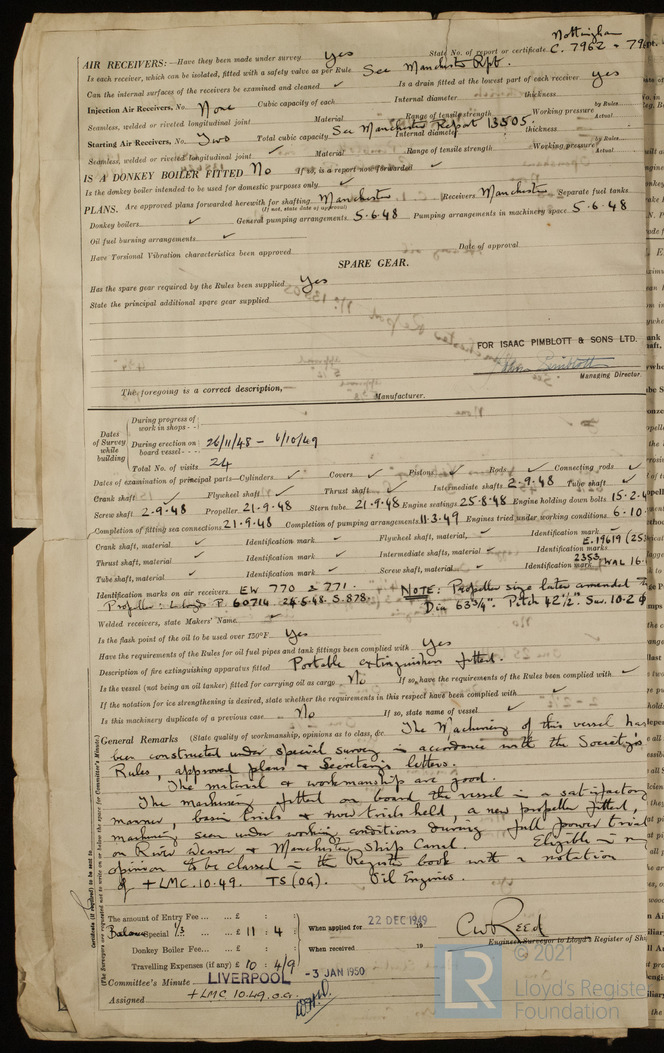 Nottingham
AIR RECEIVERS:—Have they been made under survey yes State No. of report or certificate C. 7962 + 796
Is each receiver, which can be isolated, fitted with a safety valve as per Rule See Manchester Rpt.
Can the internal surfaces of the receivers be examined and cleaned ✓ Is a drain fitted at the lowest part of each receiver yes
Injection Air Receivers, No. None Cubic capacity of each Internal diameter thickness
Seamless, welded or riveted longitudinal joint Material Range of tensile strength Working pressure by Rules Actual
Starting Air Receivers, No. Two Total cubic capacity See Manchester Report 13505. Internal diameter thickness
Seamless, welded or riveted longitudinal joint ✓ Material Range of tensile strength Working pressure by Rules Actual
IS A DONKEY BOILER FITTED No If so, is a report now forwarded ✓
Is the donkey boiler intended to be used for domestic purposes only ✓
PLANS. Are approved plans forwarded herewith for shafting Manchester Receivers Manchester Separate fuel tanks
(If not, state date of approval)
Donkey boilers ✓ General pumping arrangements 5.6.48 Pumping arrangements in machinery space 5.6.48
Oil fuel burning arrangements ✓
Have Torsional Vibration characteristics been approved Date of approval
SPARE GEAR.
Has the spare gear required by the Rules been supplied Yes
State the principal additional spare gear supplied
FOR ISAAC PIMBLOTT & SONS LTD.
Managing Director.
The foregoing is a correct description,
Manufacturer.
Dates of Survey while building
During progress of work in shops - -
During erection on board vessel - - - 26/11/48 — 6/10/49
Total No. of visits 24
Dates of examination of principal parts—Cylinders ✓ Covers ✓ Pistons ✓ Rods ✓ Connecting rods ✓
Crank shaft ✓ Flywheel shaft ✓ Thrust shaft ✓ Intermediate shafts 2-9-48 Tube shaft ✓
Screw shaft 2-9-48 Propeller 21-9-48 Stern tube 21-9-48 Engine seatings 25-8-48 Engine holding down bolts 15-2-4
Completion of fitting sea connections 21-9-48 Completion of pumping arrangements 11-3-49 Engines tried under working conditions 6-10
Crank shaft, material ✓ Identification mark ✓ Flywheel shaft, material, ✓ Identification mark ✓
Thrust shaft, material ✓ Identification mark ✓ Intermediate shafts, material ✓ Identification marks E.19619 (253
Tube shaft, material ✓ Identification mark ✓ Screw shaft, material ✓ Identification mark 2353 WAL 16
Identification marks on air receivers EW 770 & 771.
Propeller: Lloyds P. 60714 24.5.48. S.878. NOTE: Propeller size later amended to
Dia 63¾". Pitch 42½". Sur. 10-2
Welded receivers, state Makers' Name ✓
Is the flash point of the oil to be used over 150°F. Yes
Have the requirements of the Rules for oil fuel pipes and tank fittings been complied with Yes
Description of fire extinguishing apparatus fitted Portable extinguishers fitted.
Is the vessel (not being an oil tanker) fitted for carrying oil as cargo No If so, have the requirements of the Rules been complied with ✓
If the notation for ice strengthening is desired, state whether the requirements in this respect have been complied with ✓
Is this machinery duplicate of a previous case No If so, state name of vessel ✓
General Remarks (State quality of workmanship, opinions as to class, &c. The Machinery of this vessel has
been constructed under special survey in accordance with the Society's
Rules, approved plans & Secretary's letters.
The material & workmanship are good.
The machinery fitted on board the vessel in a satisfactory
manner, basin trials & river trials held, a new propeller fitted,
machinery seen under working conditions during full power trial
on River Weaver & Manchester Ship Canal. Eligible in my
opinion to be classed in the Register book with a notation
of +LMC.10.49. TS (OG). Oil Engines.
Certificate (if required) to be sent to
(The Surveyors are requested not to write on or below the space for Committee's Minute.)
The amount of Entry Fee ... £ : :
Balance Special ⅓ ... £ 11 : 4 : When applied for 22 DEC 1949
Donkey Boiler Fee ... £ : : When received 19
Travelling Expenses (if any) £ 10 : 4/9
C W Reed
Engineer Surveyor to Lloyd's Register of Sh
Committee's Minute LIVERPOOL -3 JAN 1950
Assigned +LMC 10.49. O.G.
© 2021
LR
Lloyd's Register
Foundation